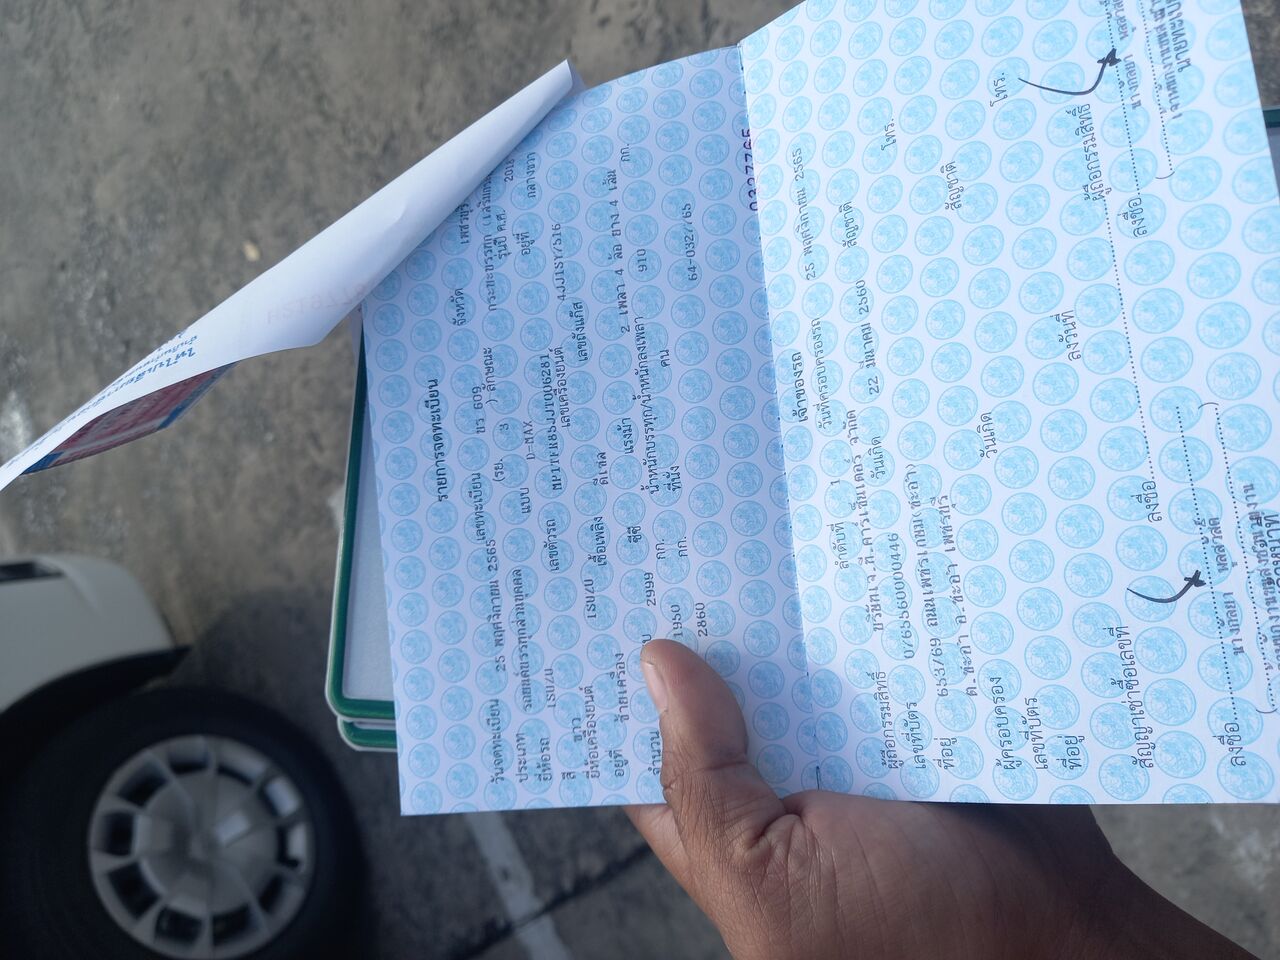 รายการจดทะเบียน
วันจดทะเบียน 25 พฤศจิกายน 2565 เลขทะเบียน ขร 609 จังหวัด เพชรบุรี
ประเภท รถยนต์บรรทุกส่วนบุคคล (รย. 3 ) ลักษณะ กระบะบรรทุก
ยี่ห้อรถ ISUZU แบบ D-MAX รุ่นปี ค.ศ. 2016
สี ขาว เลขตัวรถ อยู่ที่ กลางขวา
ยี่ห้อเครื่องยนต์ ISUZU เลขเครื่องยนต์ 4JJ1SY7516
อยู่ที่ ซ้ายเครื่อง เชื้อเพลิง ดีเซล เลขถังแก๊ส
จำนวน 2999 ซีซี แรงม้า 2 เพลา 4 ล้อ ยาง 4 เส้น
1950 กก. น้ำหนักบรรทุก/น้ำหนักลงเพลา 910 กก.
2860 กก. ที่นั่ง คน
64-0327765
0327765
เจ้าของรถ
ลำดับที่ 1 วันที่ครอบครองรถ 25 พฤศจิกายน 2565
ผู้ถือกรรมสิทธิ์ บริษัท เจ.ที.คาร์เซ็นเตอร์ จำกัด
เลขที่บัตร 0763560000446 วันเกิด 22 มีนาคม 2560 สัญชาติ
ที่อยู่ 653/69 ถนนเพชรเกษม
ต.ชะอำ อ.ชะอำ เพชรบุรี โทร.
ผู้ครอบครอง
เลขที่บัตร วันเกิด สัญชาติ
ที่อยู่ โทร.
สัญญาเช่าซื้อเลขที่ ลงวันที่ ผู้ถือกรรมสิทธิ์
ลงชื่อ ลงชื่อ
ลงชื่อ